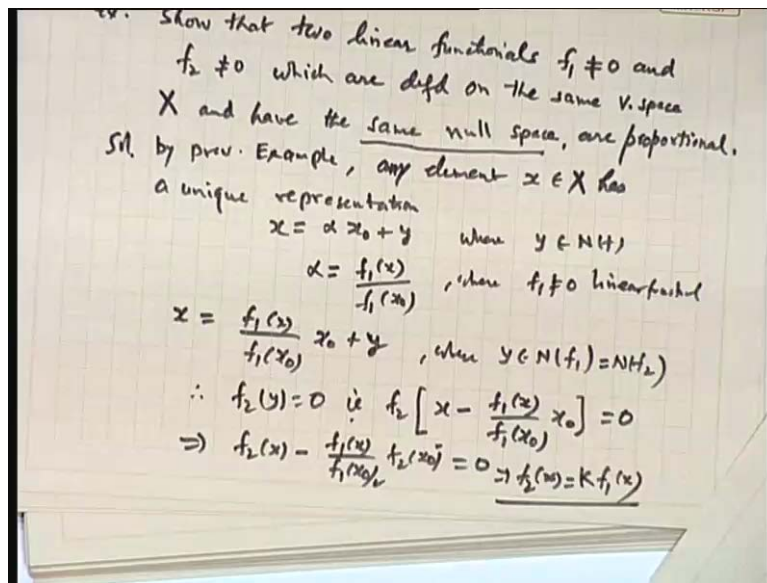 Ex. Show that two linear functionals f₁ ≠ 0 and
f₂ ≠ 0 which are defd on the same V. space
X and have the same null space, are proportional.
Sol. by prev. Example, any element x ∈ X has
a unique representation
x = α x₀ + y where y ∈ N(f)
α = f₁(x) / f₁(x₀) , where f₁ ≠ 0 linear
x = f₁(x) / f₁(x₀) x₀ + y , when y ∈ N(f₁) = N(f₂)
∴ f₂(y) = 0 ie f₂ [ x - f₁(x) / f₁(x₀) x₀ ] = 0
⇒ f₂(x) - f₁(x) / f₁(x₀) f₂(x₀) = 0 ⇒ f₂(x) = K f₁(x)